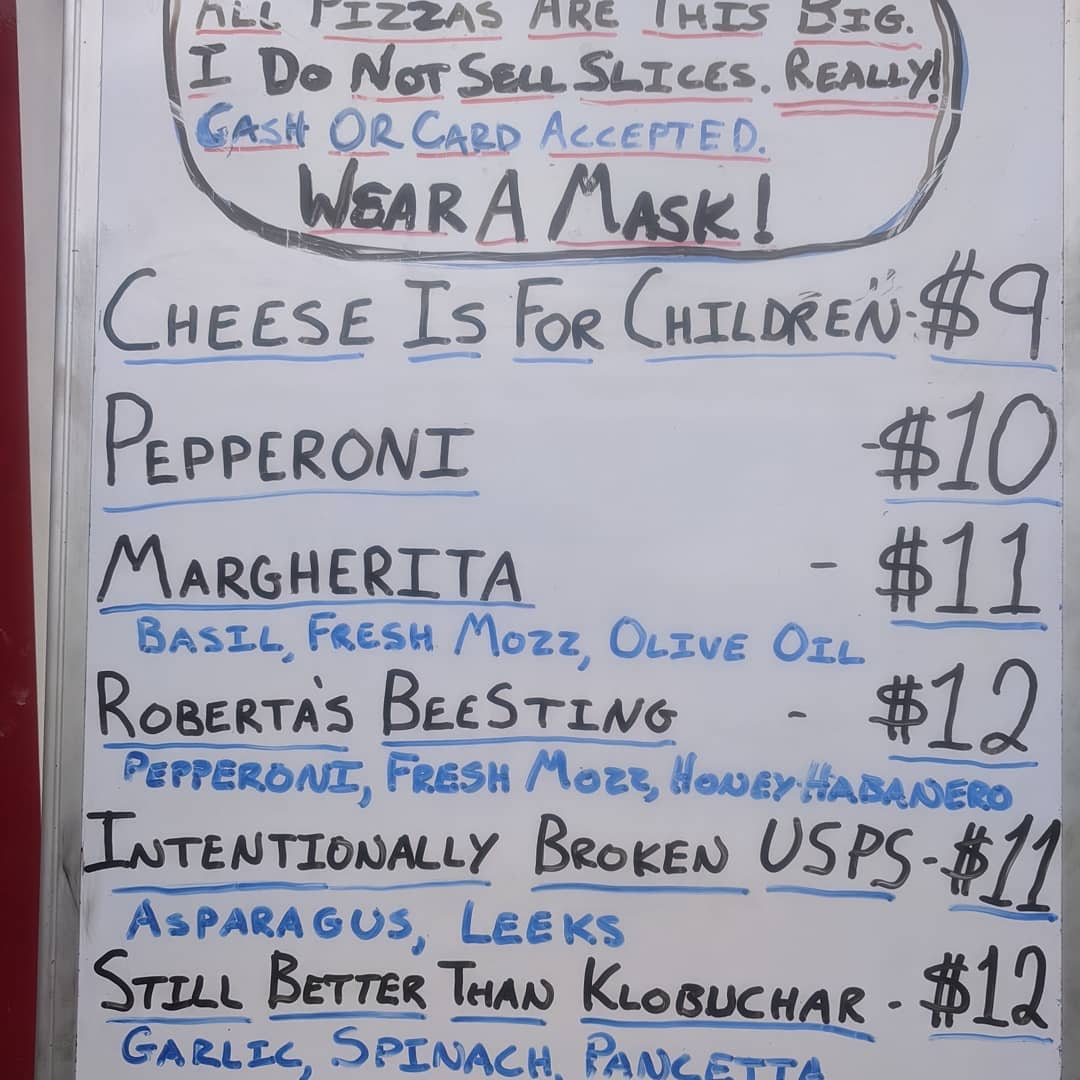 ALL PIZZAS ARE THIS BIG.
I DO NOT SELL SLICES. REALLY!
CASH OR CARD ACCEPTED.
WEAR A MASK!
CHEESE IS FOR CHILDREN - $9
PEPPERONI - $10
MARGHERITA - $11
BASIL, FRESH MOZZ, OLIVE OIL
ROBERTA'S BEESTING - $12
PEPPERONI, FRESH MOZZ, HONEY-HABANERO
INTENTIONALLY BROKEN USPS - $11
ASPARAGUS, LEEKS
STILL BETTER THAN KLOBUCHAR - $12
GARLIC, SPINACH, PANCETTA